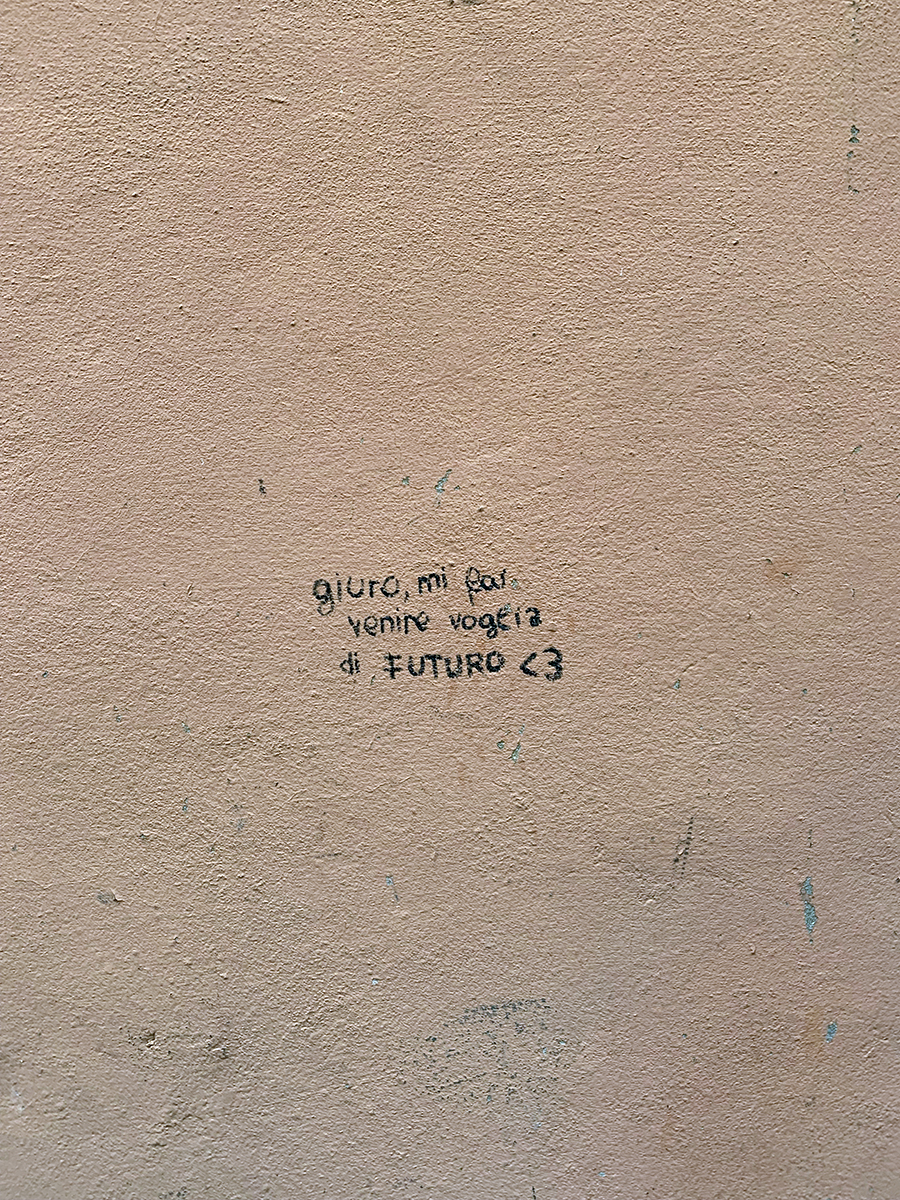 giuro, mi fai
venire voglia
di FUTURO <3